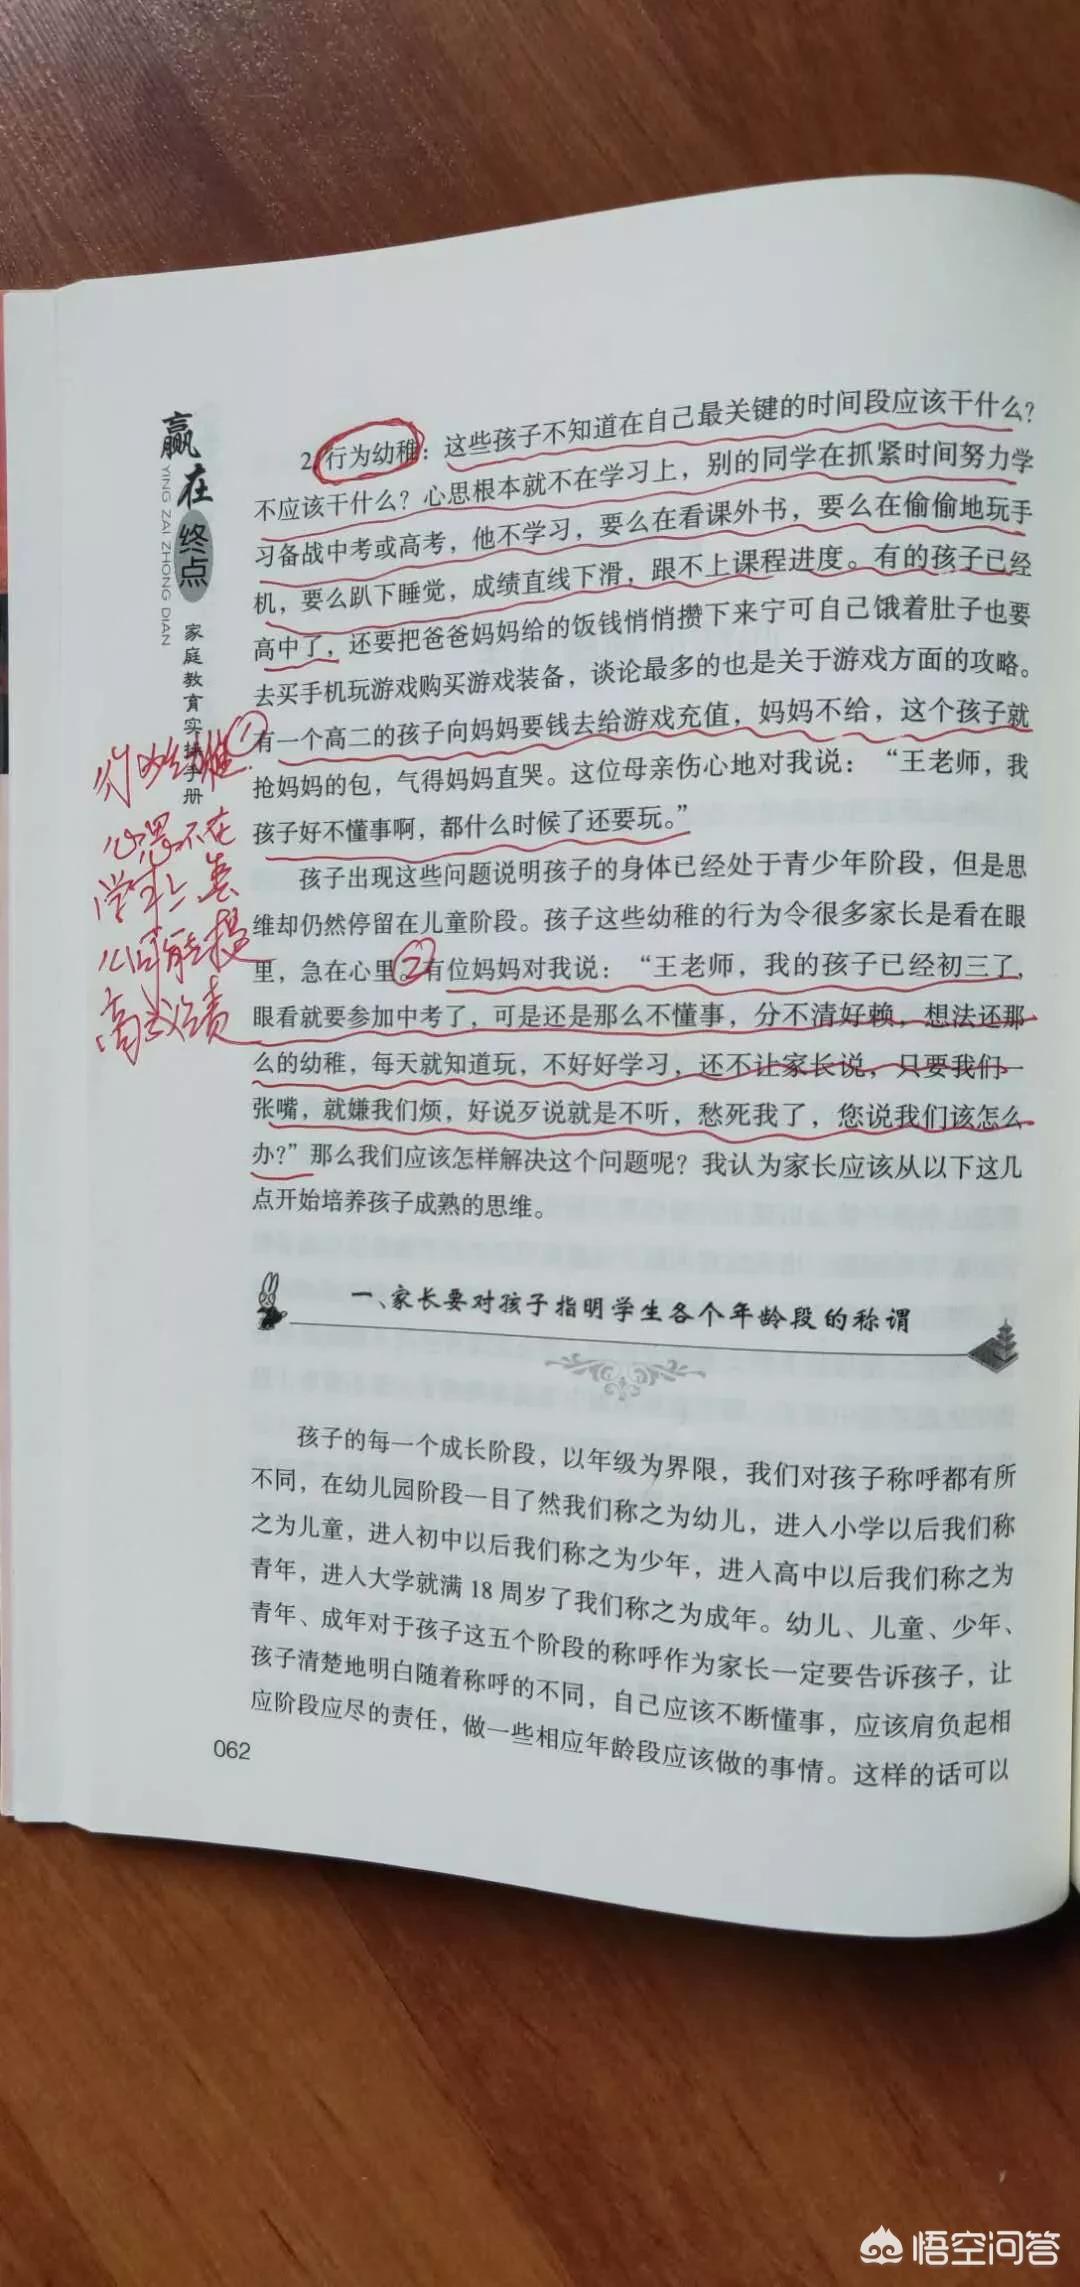 赢在终点
YING ZAI ZHONG DIAN
家庭教育实操手册
2. 行为幼稚：这些孩子不知道在自己最关键的时间段应该干什么？
不应该干什么？心思根本就不在学习上，别的同学在抓紧时间努力学
习备战中考或高考，他不学习，要么在看课外书，要么在偷偷地玩手
机，要么趴下睡觉，成绩直线下滑，跟不上课程进度。有的孩子已经
高中了，还要把爸爸妈妈给的饭钱悄悄攒下来宁可自己饿着肚子也要
去买手机玩游戏购买游戏装备，谈论最多的也是关于游戏方面的攻略。
①
有一个高二的孩子向妈妈要钱去给游戏充值，妈妈不给，这个孩子就
抢妈妈的包，气得妈妈直哭。这位母亲伤心地对我说：“王老师，我
孩子好不懂事啊，都什么时候了还要玩。”
孩子出现这些问题说明孩子的身体已经处于青少年阶段，但是思
维却仍然停留在儿童阶段。孩子这些幼稚的行为令很多家长是看在眼
里，急在心里。②有位妈妈对我说：“王老师，我的孩子已经初三了，
眼看就要参加中考了，可是还是那么不懂事，分不清好赖，想法还那
么的幼稚，每天就知道玩，不好好学习，还不让家长说，只要我们一
张嘴，就嫌我们烦，好说歹说就是不听，愁死我了，您说我们该怎么
办？”那么我们应该怎样解决这个问题呢？我认为家长应该从以下这几
点开始培养孩子成熟的思维。
行为幼稚
心思不在
学习上，
高成绩
一、家长要对孩子指明学生各个年龄段的称谓
孩子的每一个成长阶段，以年级为界限，我们对孩子称呼都有所
不同，在幼儿园阶段一目了然我们称之为幼儿，进入小学以后我们称
之为儿童，进入初中以后我们称之为少年，进入高中以后我们称之为
青年，进入大学就满 18 周岁了我们称之为成年。幼儿、儿童、少年、
青年、成年对于孩子这五个阶段的称呼作为家长一定要告诉孩子，让
孩子清楚地明白随着称呼的不同，自己应该不断懂事，应该肩负起相
应阶段应尽的责任，做一些相应年龄段应该做的事情。这样的话可以
062
悟空问答